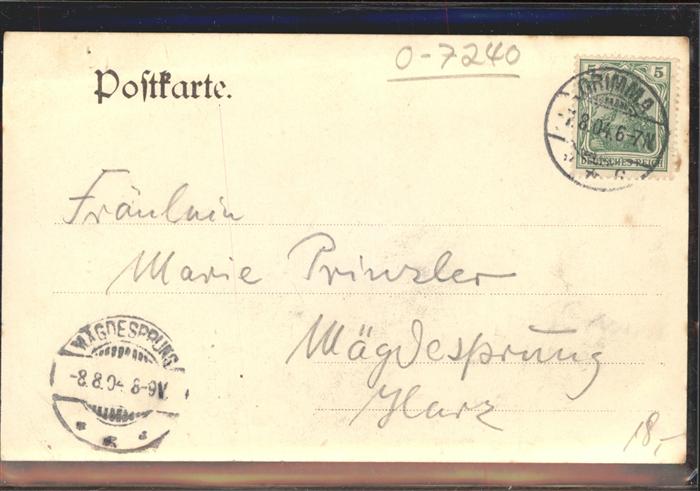 O-7240
Postkarte.
5 5
GRIMMA
-7.8.04.6-7N.
DEUTSCHES REICH
* c
Fräulein
Marie Prinzler
Mägdesprung
Harz
MÄGDESPRUNG
-8.8.04 8-9V.
18,-